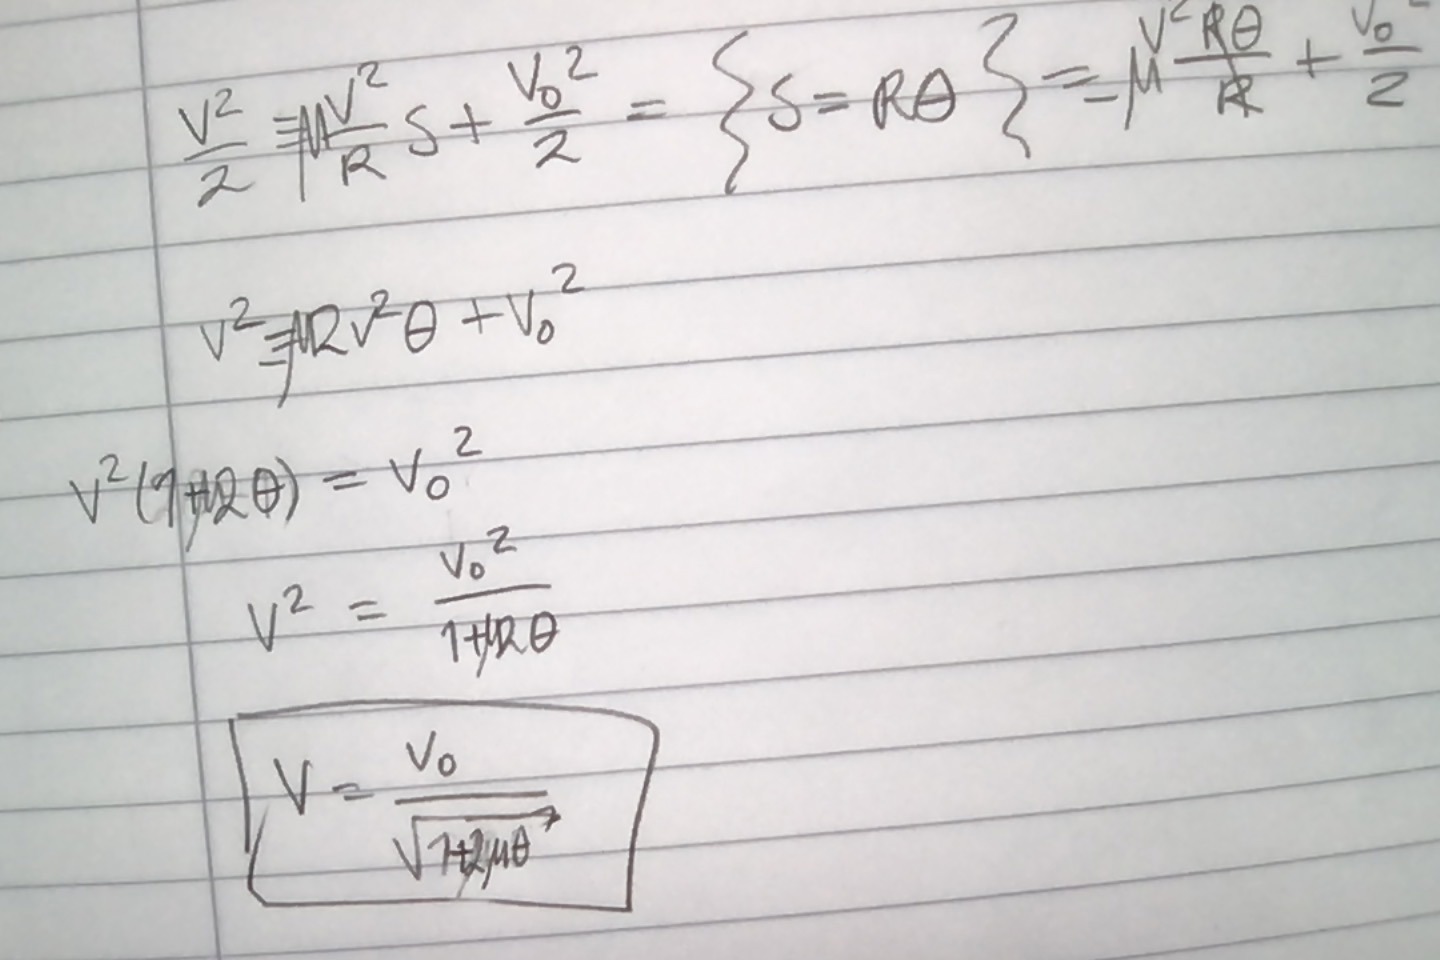 V²/2 = -μ V²/R S + V₀²/2 = { S = Rθ } = -μ V² Rθ/R + V₀²/2
V² = -μ2V²θ + V₀²
V²(1+μ2θ) = V₀²
V² = V₀²/(1+μ2θ)
V = V₀/√(1+2μθ)